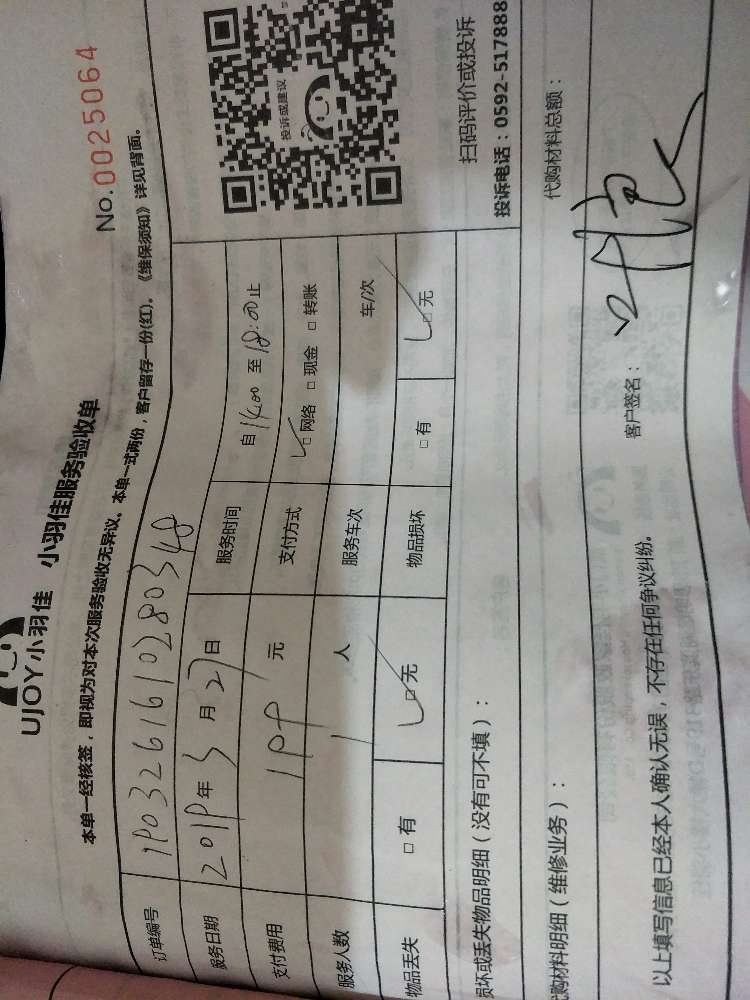 UJOY小羽佳 小羽佳服务验收单
No.0025064
本单一经核签，即视为对本次服务验收无异议。本单一式两份，客户留存一份(红)。《维保须知》详见背面。
订单编号 19032616102803 48
服务日期 2019年3月27日 服务时间 自14:00至18:00止
支付费用 199元 支付方式 □网络 □现金 □转账
服务人数 1人 服务车次 车/次
物品丢失 □有 □无 物品损坏 □有 □无
投诉或建议
扫码评价或投诉
投诉电话：0592-517888
损坏或丢失物品明细（没有可不填）：
代购材料明细（维修业务）： 代购材料总额：
以上填写信息已经本人确认无误，不存在任何争议纠纷。 客户签名：